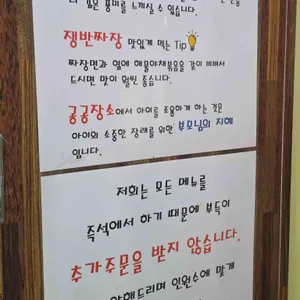 깊은 풍미를 느끼실 수 있습니다.
쟁반짜장 맛있게 먹는 Tip
짜장면과 옆에 해물야채볶음을 같이 비벼서
드시면 맛이 훨씬 좋습니다.
공공장소에서 아이를 조용하게 하는 것은
아이의 소중한 장래를 위한 부모님의 지혜
입니다.
저희는 모든 메뉴를
즉석에서 하기 때문에 부득이
추가주문을 받지 않습니다.
인원수에 맞게